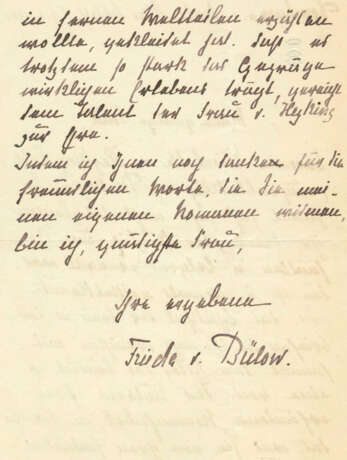 in fernen Weltteilen erzählen
wollte, gekleidet hat. Daß es
trotzdem so stark das Gepräge
wirklichen Erlebens trägt, gereicht
dem Talent der Frau v. Heyking
zur Ehre.
Indem ich Ihnen noch danke für die
freundlichen Worte, die Sie mei-
nen eigenen Romanen widmen,
bin ich, gnädigste Frau,
Ihre ergebene
Frieda v. Bülow.